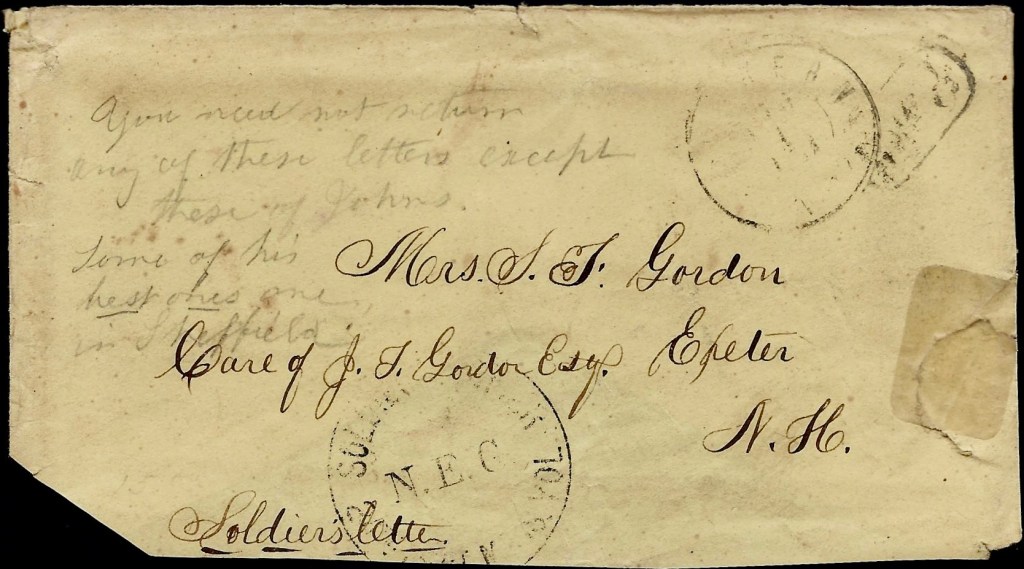 You need not return
any of these letters except
these of Johns.
Some of his
best ones are
in Sheffield
Mrs. S. F. Gordon
Care of J. S. Gordon Esq. Exeter
N. H.
N. E. C
Soldiers letter